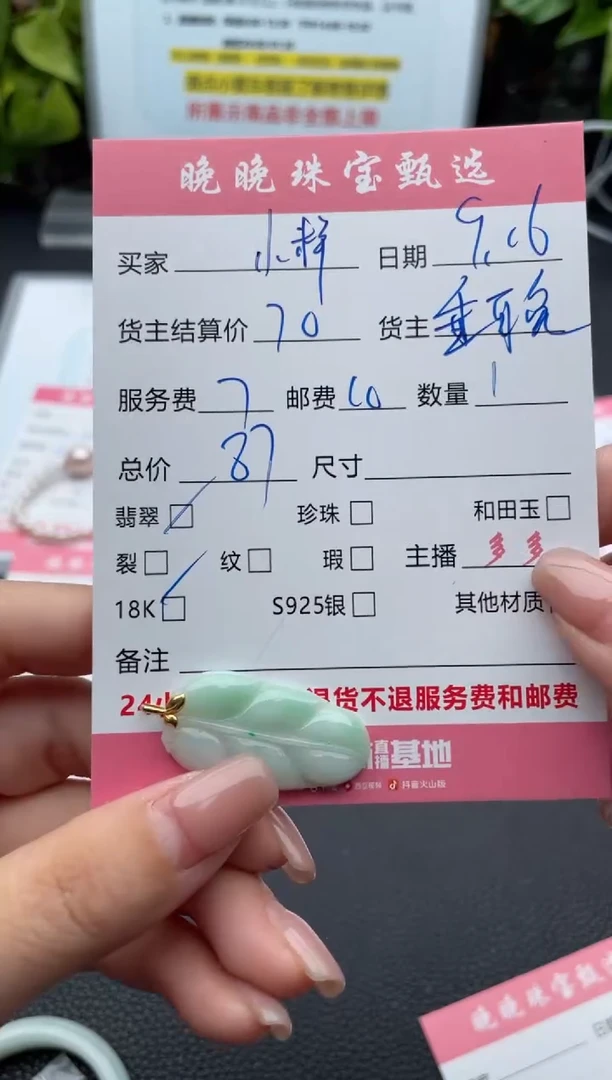 晚晚珠宝甄选
买家 小籽 日期 9.16
货主结算价 70 货主
服务费 7 邮费 10 数量 1
总价 87 尺寸
翡翠 珍珠 和田玉
裂 纹 瑕 主播 多多
18K S925银 其他材质
备注
24 退货不退服务费和邮费
直播基地
抖音火山版
晚晚珠宝甄